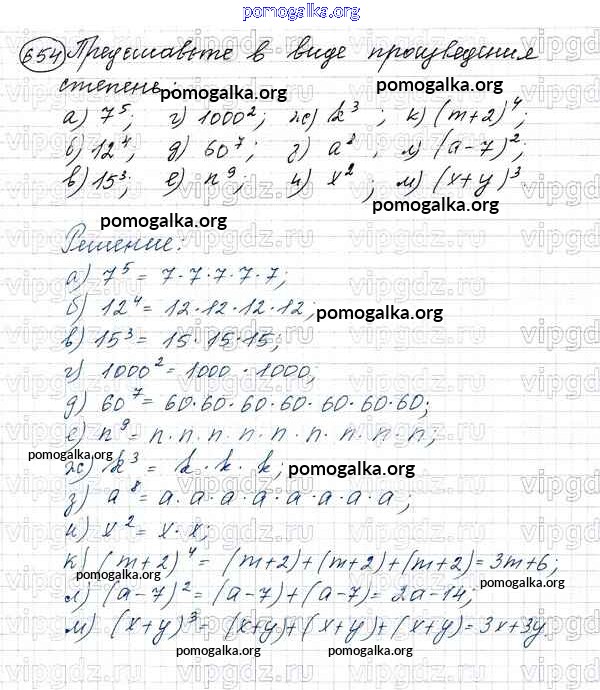 pomogalka.org
654 Представьте в виде произведения
степень:
pomogalka.org pomogalka.org
а) 7⁵; г) 1000²; ж) k³; к) (m+2)⁴;
б) 12⁴; д) 60⁷; з) a⁸; л) (a-7)²;
в) 15³; е) n⁹; и) x²; м) (x+y)³.
pomogalka.org pomogalka.org
Решение:
а) 7⁵ = 7·7·7·7·7;
б) 12⁴ = 12·12·12·12; pomogalka.org
в) 15³ = 15·15·15;
г) 1000² = 1000 · 1000;
д) 60⁷ = 60·60·60·60·60·60·60;
е) n⁹ = n·n·n·n·n·n·n·n·n;
pomogalka.org
ж) k³ = k·k·k; pomogalka.org
з) a⁸ = a·a·a·a·a·a·a·a;
и) x² = x·x;
к) (m+2)⁴ = (m+2)+(m+2)+(m+2) = 3m+6;
pomogalka.org pomogalka.org
л) (a-7)² = (a-7)+(a-7) = 2a-14;
м) (x+y)³ = (x+y)+(x+y)+(x+y) = 3x+3y
pomogalka.org pomogalka.org
vipgdz.ru